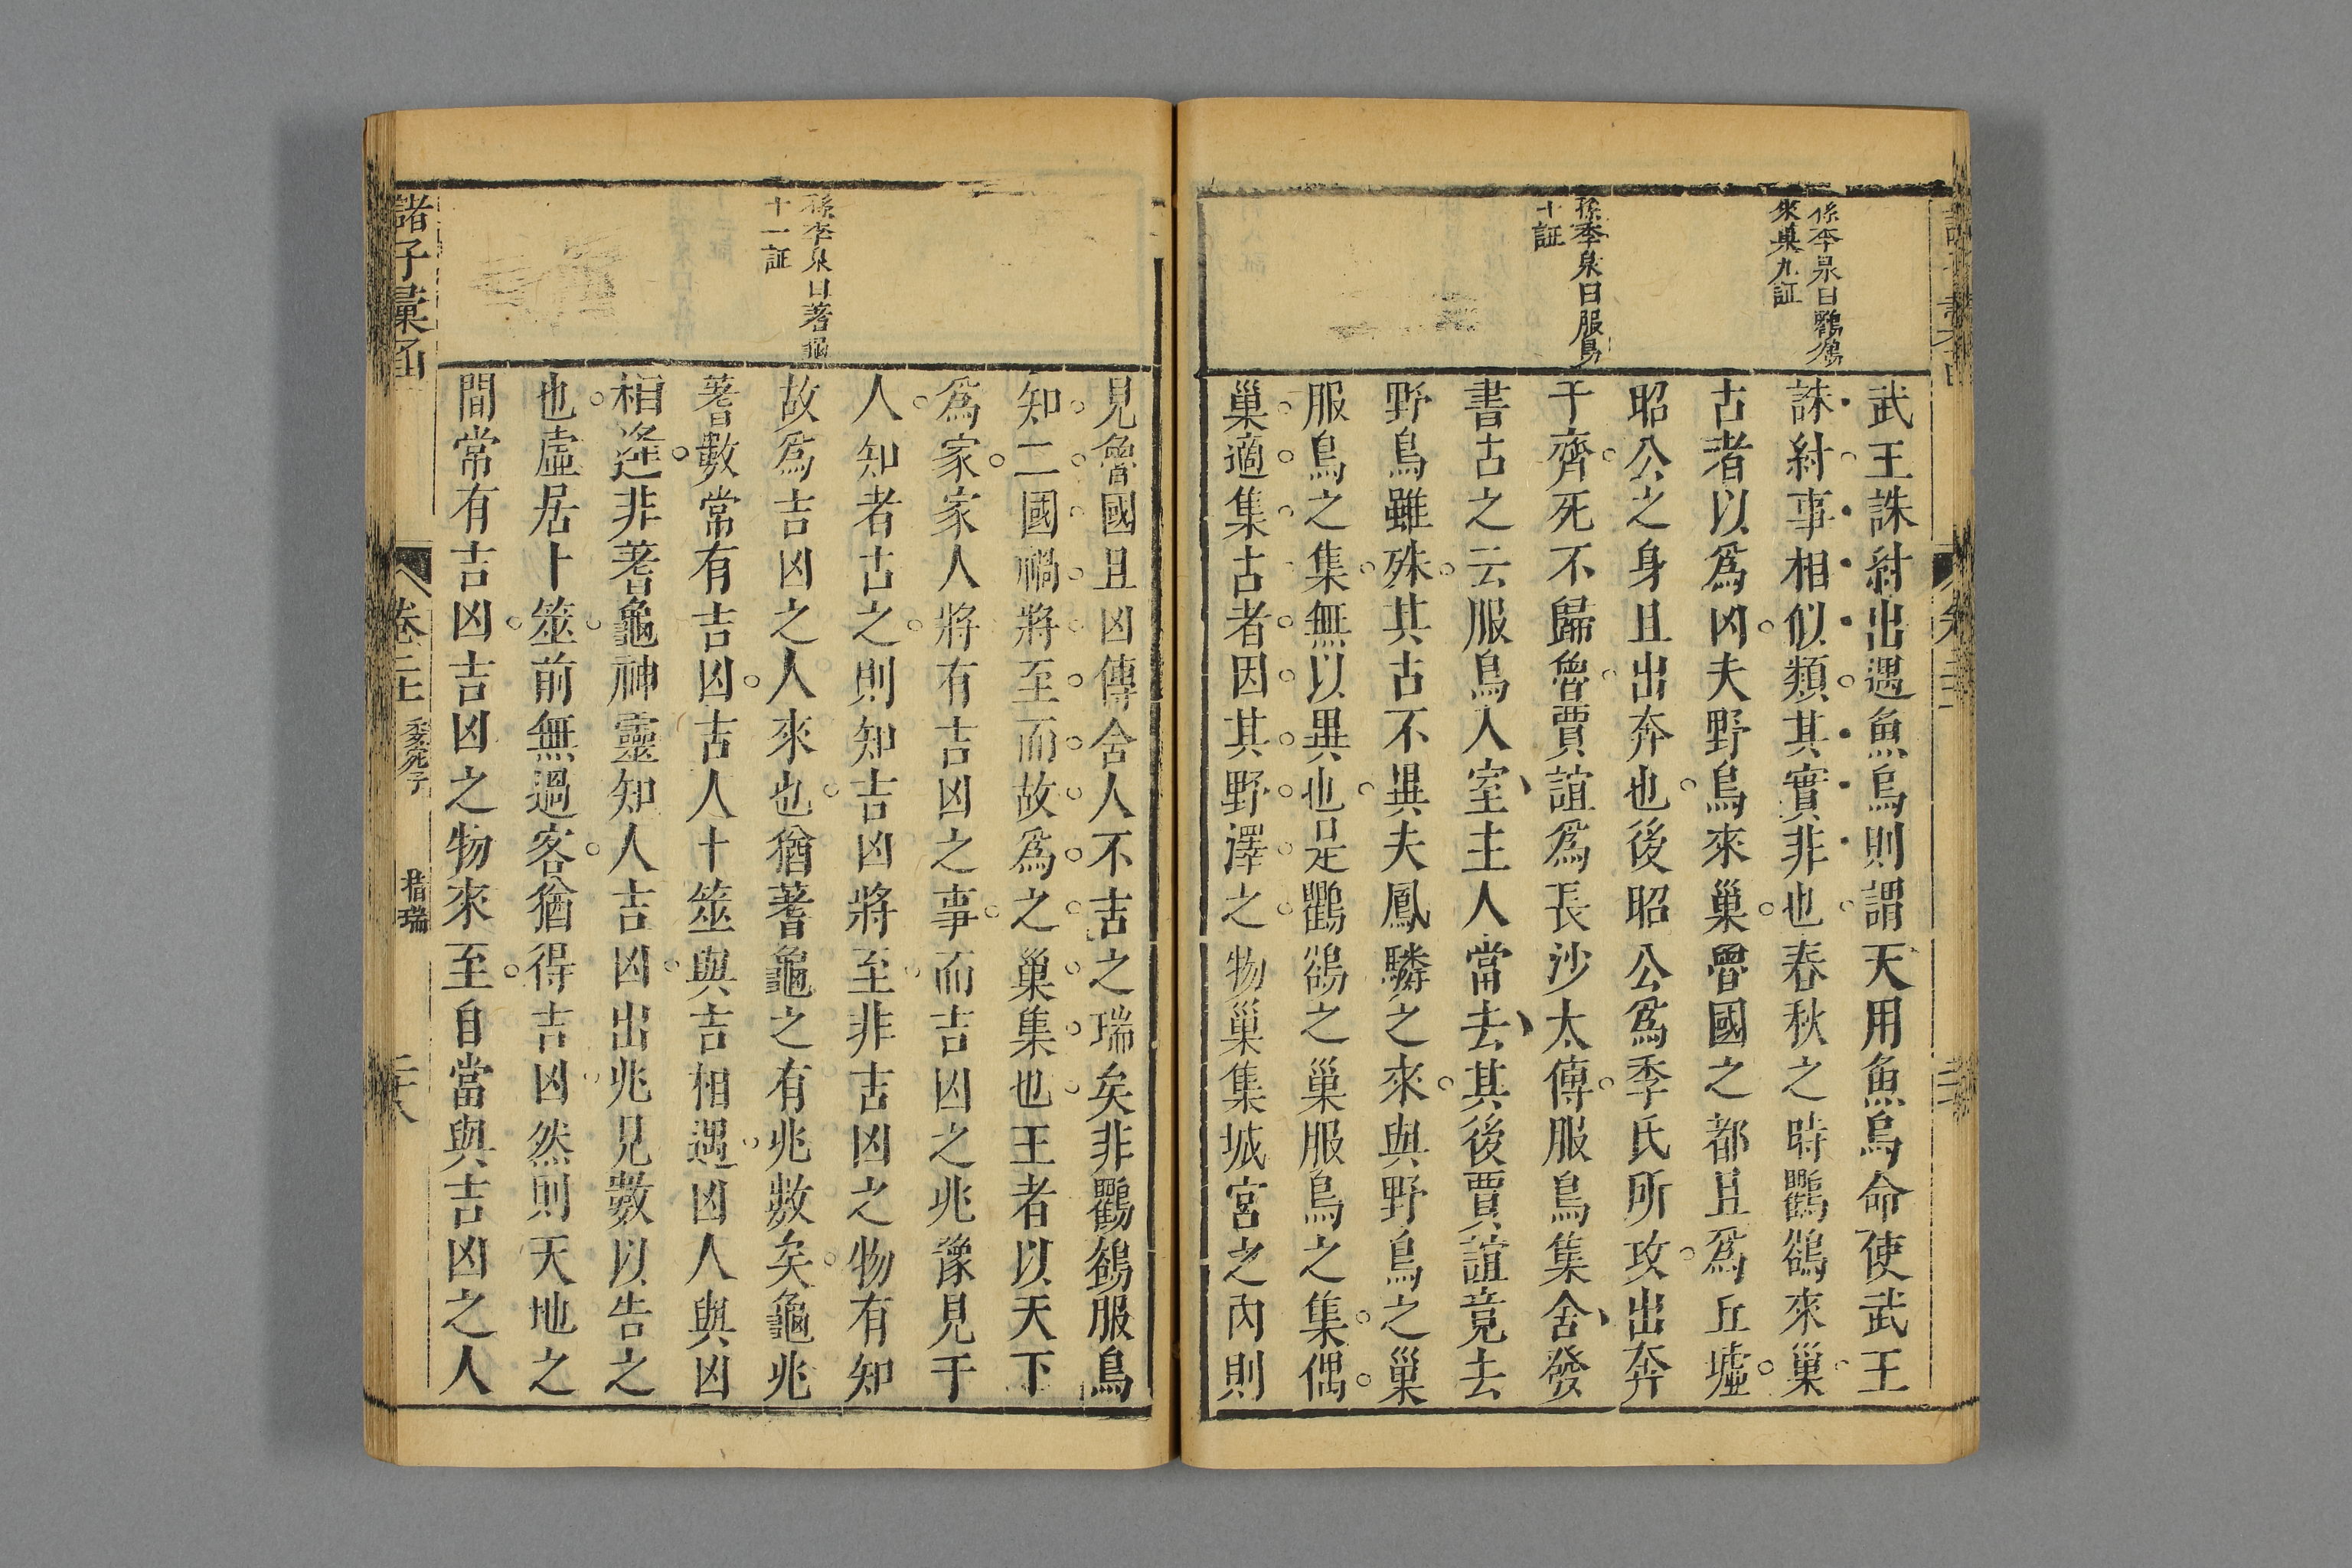 孫季泉曰鸜鵒
來巢九証
孫季泉曰服鳥
十証
武王誅紂出遇魚烏則謂天用魚烏命使武王
誅紂事相似類其實非也春秋之時鸜鵒來巢
古者以爲凶夫野鳥來巢魯國之都且爲丘墟
昭公之身且出奔也後昭公爲季氏所攻出奔
于齊死不歸魯賈誼爲長沙太傅服鳥集舍發
書古之云服鳥入室主人當去其後賈誼竟去
野鳥雖殊其古不異夫鳳驎之來與野鳥之巢
服鳥之集無以異也是鸜鵒之巢服鳥之集偶
巢適集古者因其野澤之物巢集城宮之內則
孫季泉曰蓍龜
十一証
見魯國且凶傳舍人不吉之瑞矣非鸜鵒服鳥
知二國禍將至而故爲之巢集也王者以天下
爲家家人將有吉凶之事而吉凶之兆豫見于
人知者古之則知吉凶將至非吉凶之物有知
故爲吉凶之人來也猶蓍龜之有兆數矣龜兆
蓍數常有吉凶古人十筮與吉相遇凶人與凶
相逢非蓍龜神靈知人吉凶出兆見數以告之
也虛居卜筮前無過客猶得吉凶然則天地之
間常有吉凶吉凶之物來至自當與吉凶之人
諸子彙函
卷二十
委宛子
指瑞
二十八